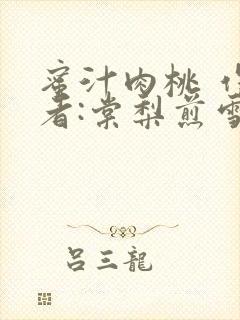 蜜汁肉桃 作
者:棠梨煎雪
吕三龍